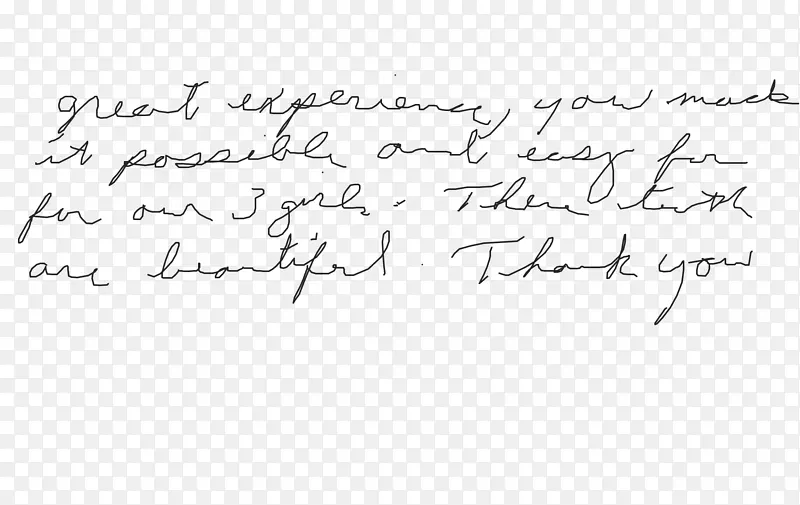 great experience, you made
it possible and easy for
for our 3 girls. There teeth
are beautiful. Thank you